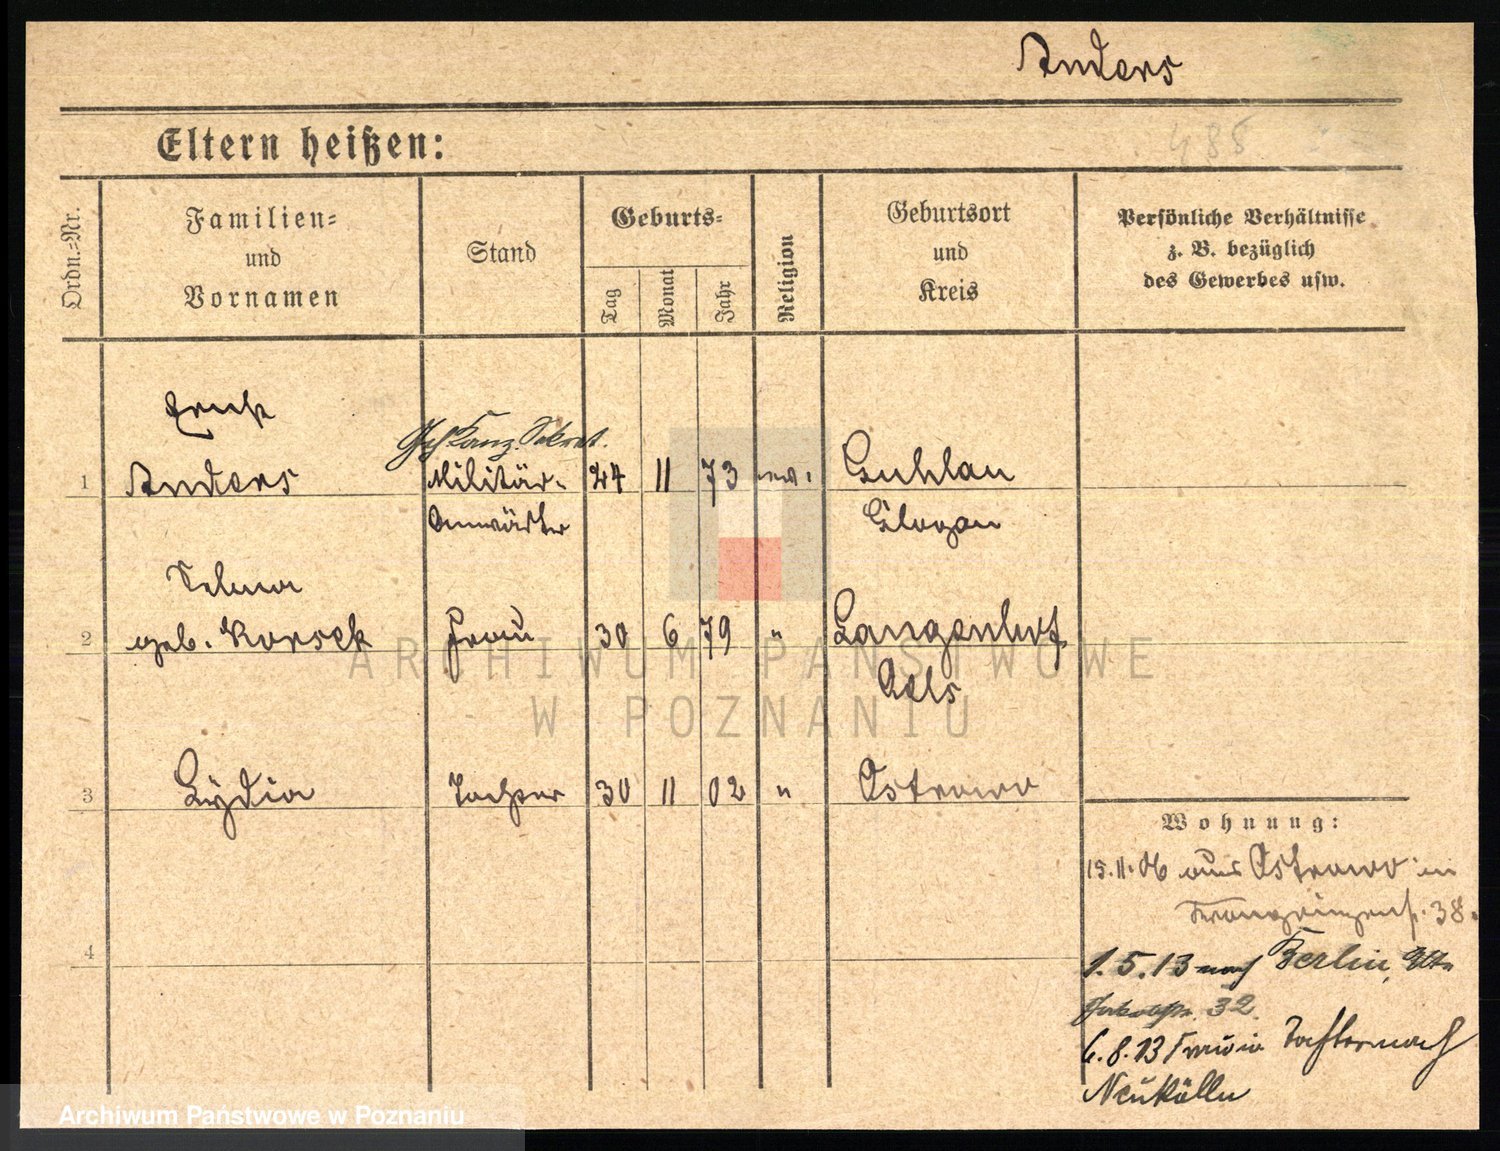 Anders
Eltern heißen:
485
Ordn.-Nr.
Familien-
und
Vornamen
Stand
Geburts-
Tag
Monat
Jahr
Religion
Geburtsort
und
Kreis
Persönliche Verhältnisse
z. B. bezüglich
des Gewerbes usw.
1
Erich
Anders
Kanz. Sekret.
Militär-
Anwärter
24 11 73 ev.
Guhlau
Glogau
2
Selma
geb. Korsek
Frau
30 6 79 "
Langenhof
Oels
3
Lydia
Tochter
30 11 02 "
Ostrowo
4
Wohnung:
15.11.06 aus Ostrowo in
Kronprinzenstr. 38.
1.5.13 nach Berlin, Alte
Jakobstr. 32.
6.8.13 Frau u. Tochter nach
Neukölln
ARCHIWUM PAŃSTWOWE
W POZNANIU
Archiwum Państwowe w Poznaniu